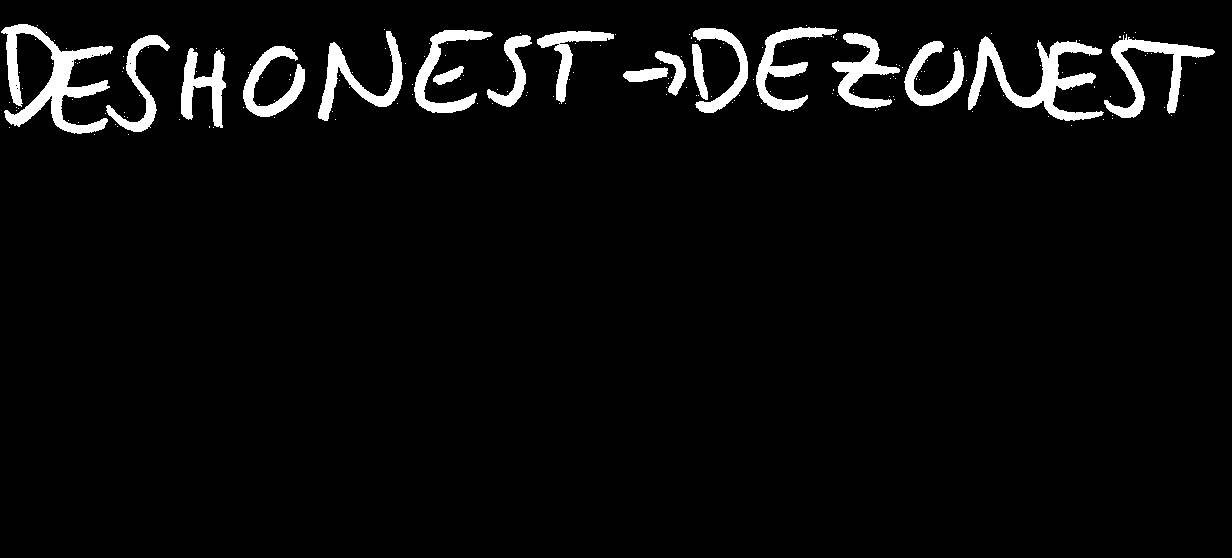 DESHONEST → DEZONEST